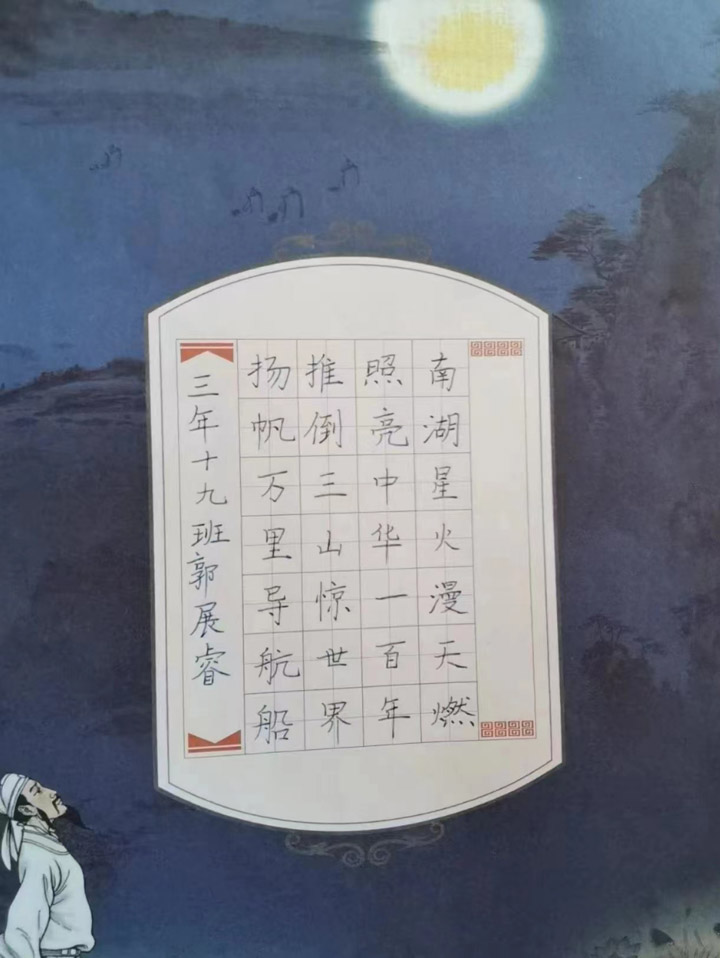 南湖星火漫天燃
照亮中华一百年
推倒三山惊世界
扬帆万里导航船
三年十九班郭展睿